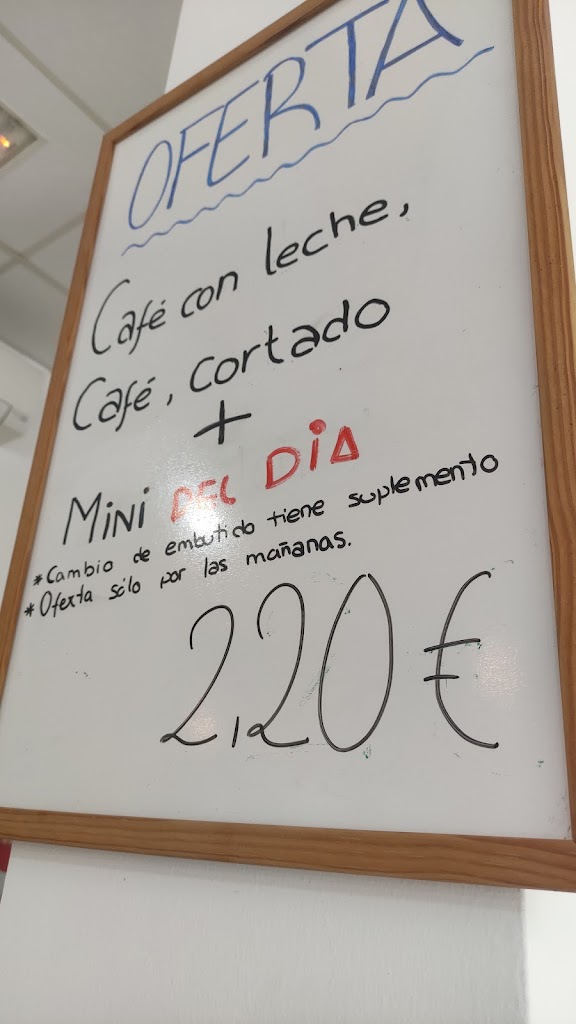 OFERTA
Café con leche,
Café, cortado
+
Mini DEL DiA
*Cambio de embutido tiene suplemento
*Oferta sólo por las mañanas.
2,20€